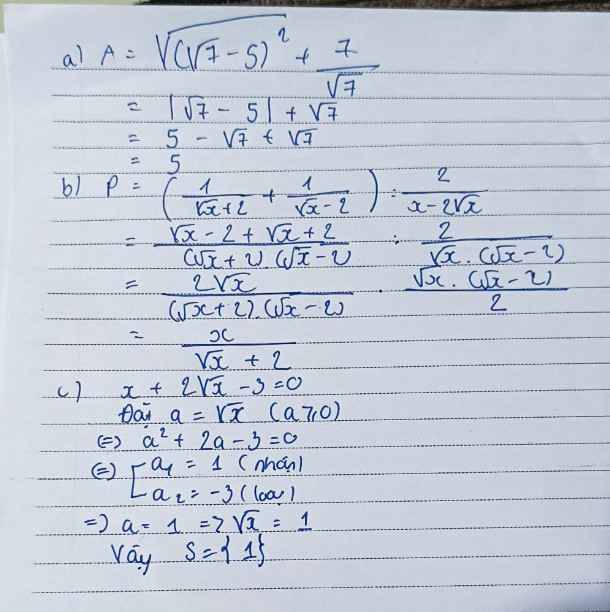 a) A = √(√7 - 5)² + 7/√7
= |√7 - 5| + √7
= 5 - √7 + √7
= 5
b) P = (1/(√x + 2) + 1/(√x - 2)) : 2/(x - 2√x)
= (√x - 2 + √x + 2)/((√x + 2).(√x - 2)) : 2/(√x.(√x - 2))
= 2√x/((√x + 2).(√x - 2)) . √x.(√x - 2)/2
= x/(√x + 2)
c) x + 2√x - 3 = 0
Đặt a = √x (a ≥ 0)
(=) a² + 2a - 3 = 0
(=) [a₁ = 1 (nhận)
a₂ = -3 (loại)
=) a = 1 => √x = 1
Vậy S = {1}